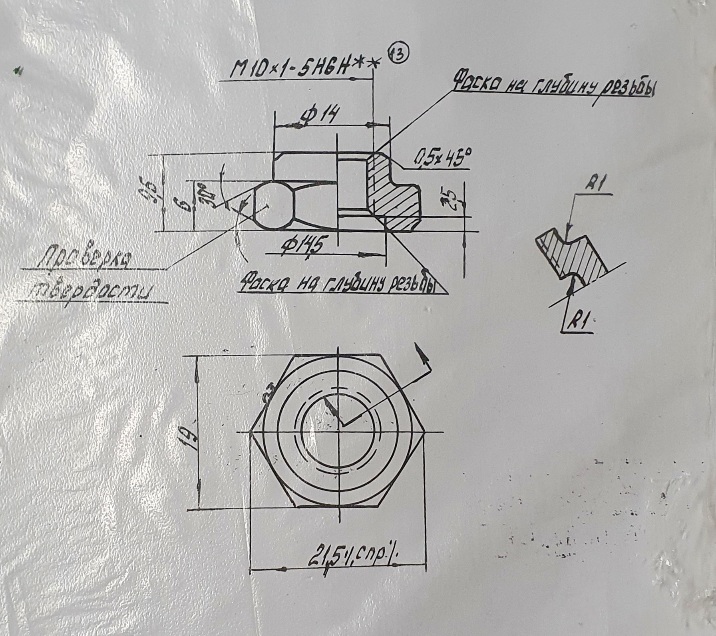 М10×1-5Н6Н**
13
Фаска на глубину резьбы
Ф14
0,5×45°
9,5
6
30°
2,5
Ф14,5
Проверка
твердости
Фаска на глубину резьбы
R1
R1
19
21,5